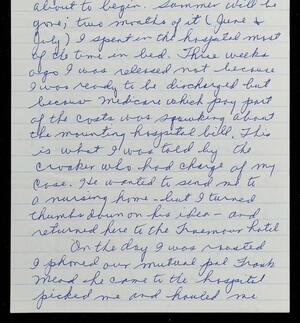 about to begin. Summer will be
gone; two months of it (June &
July) I spent in the hospital most
of the time in bed. Three weeks
ago I was released not because
I was ready to be discharged but
because Medicare which pay part
of the costs was squawking about
the mounting hospital bill. This
is what I was told by the
croaker who had charge of my
case. He wanted to send me to
a nursing home - but I turned
thumbs down on his idea - and
returned here to the Traemour hotel
On the day I was roosted
I phoned our mutual pal Frank
Mead she came to the hospital
picked me and hauled me